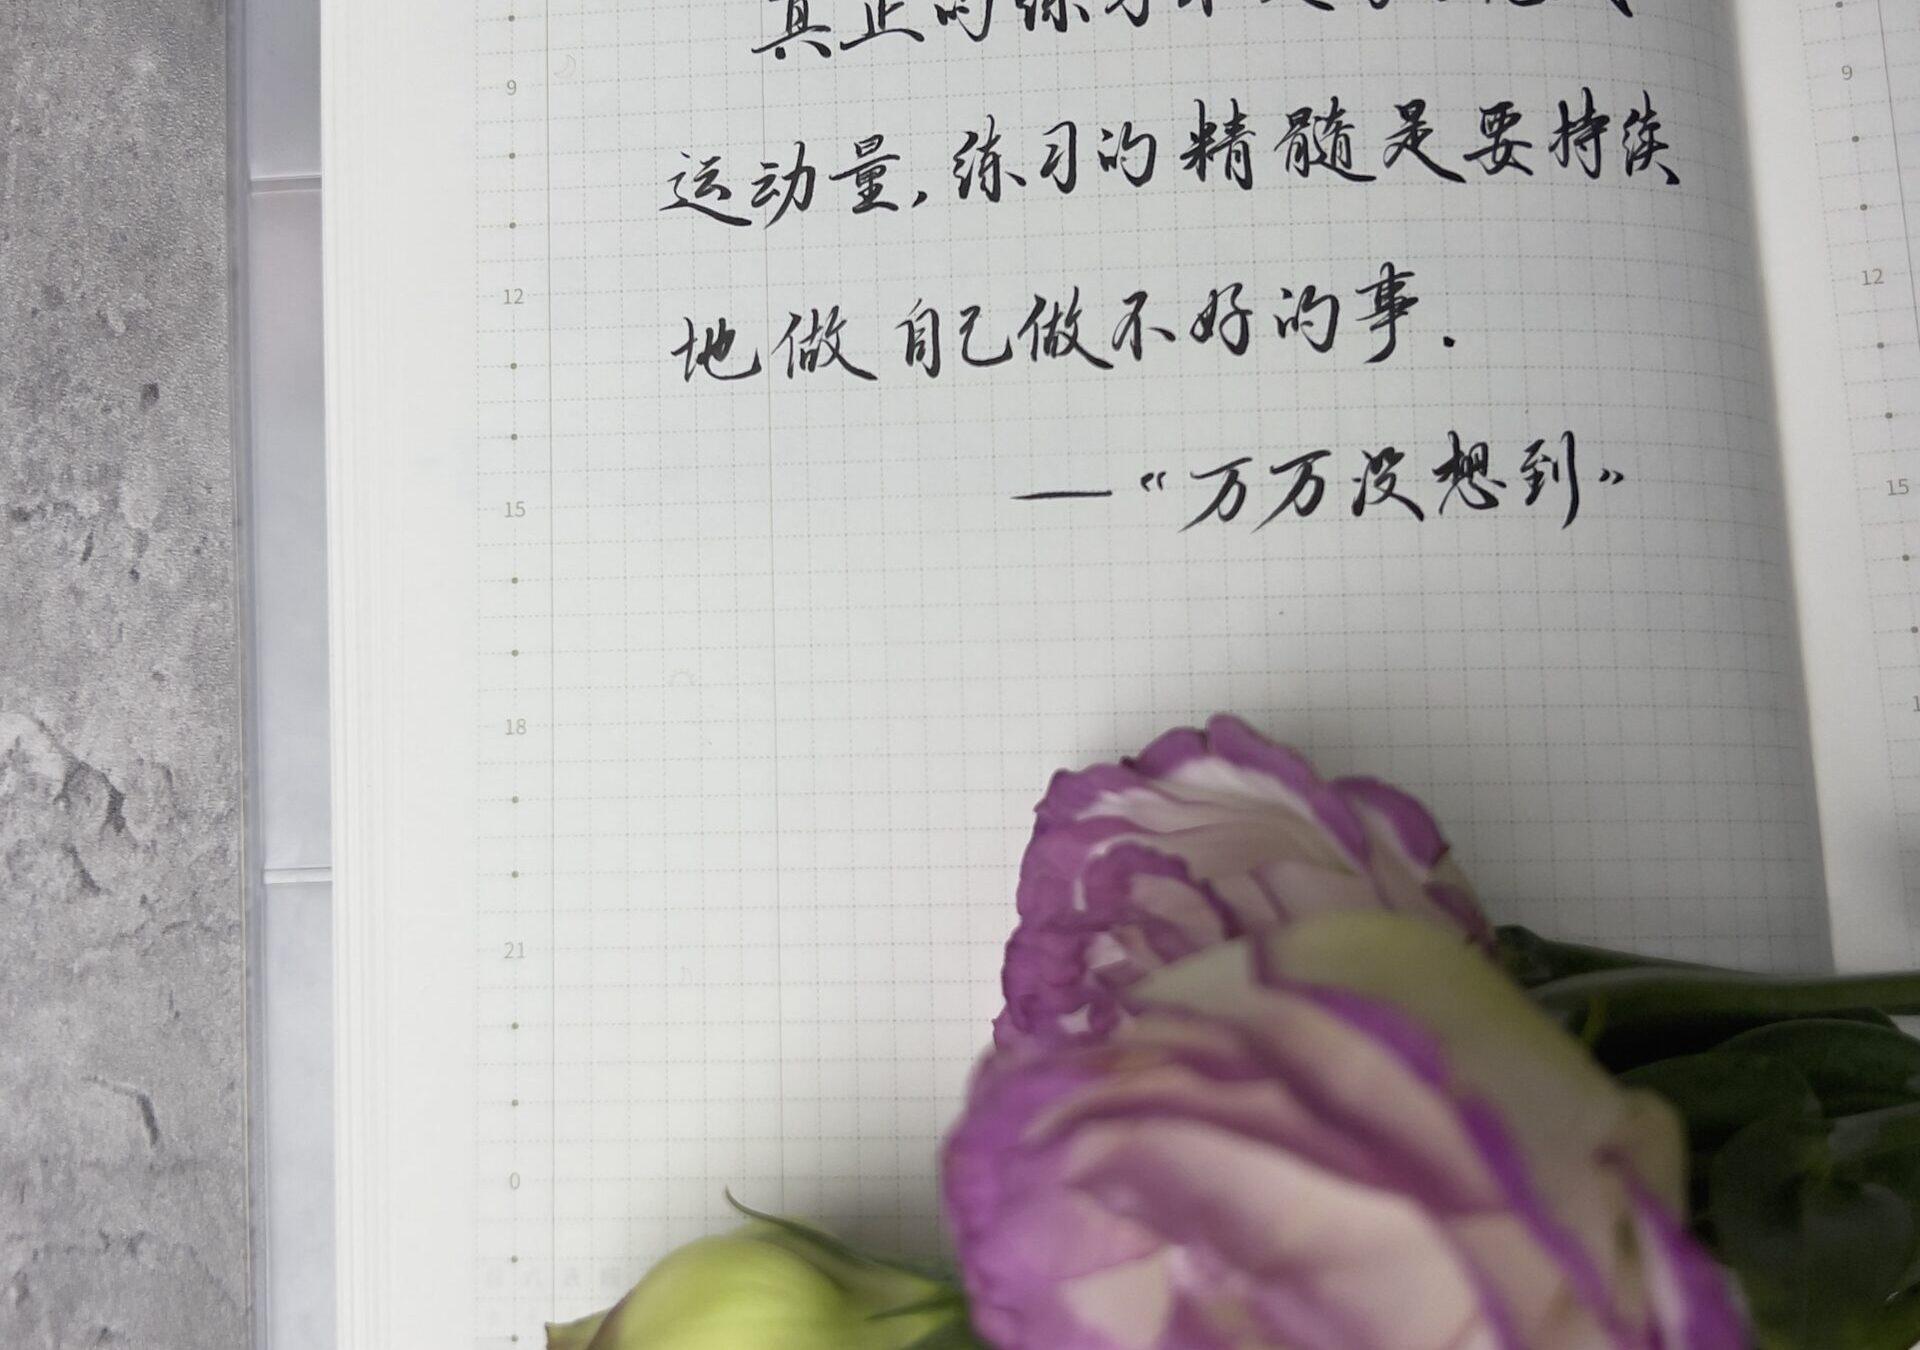 真正的练习不是为了完成
运动量,练习的精髓是要持续
地做自己做不好的事.
—“万万没想到”
9
12
15
18
21
0
9
12
15